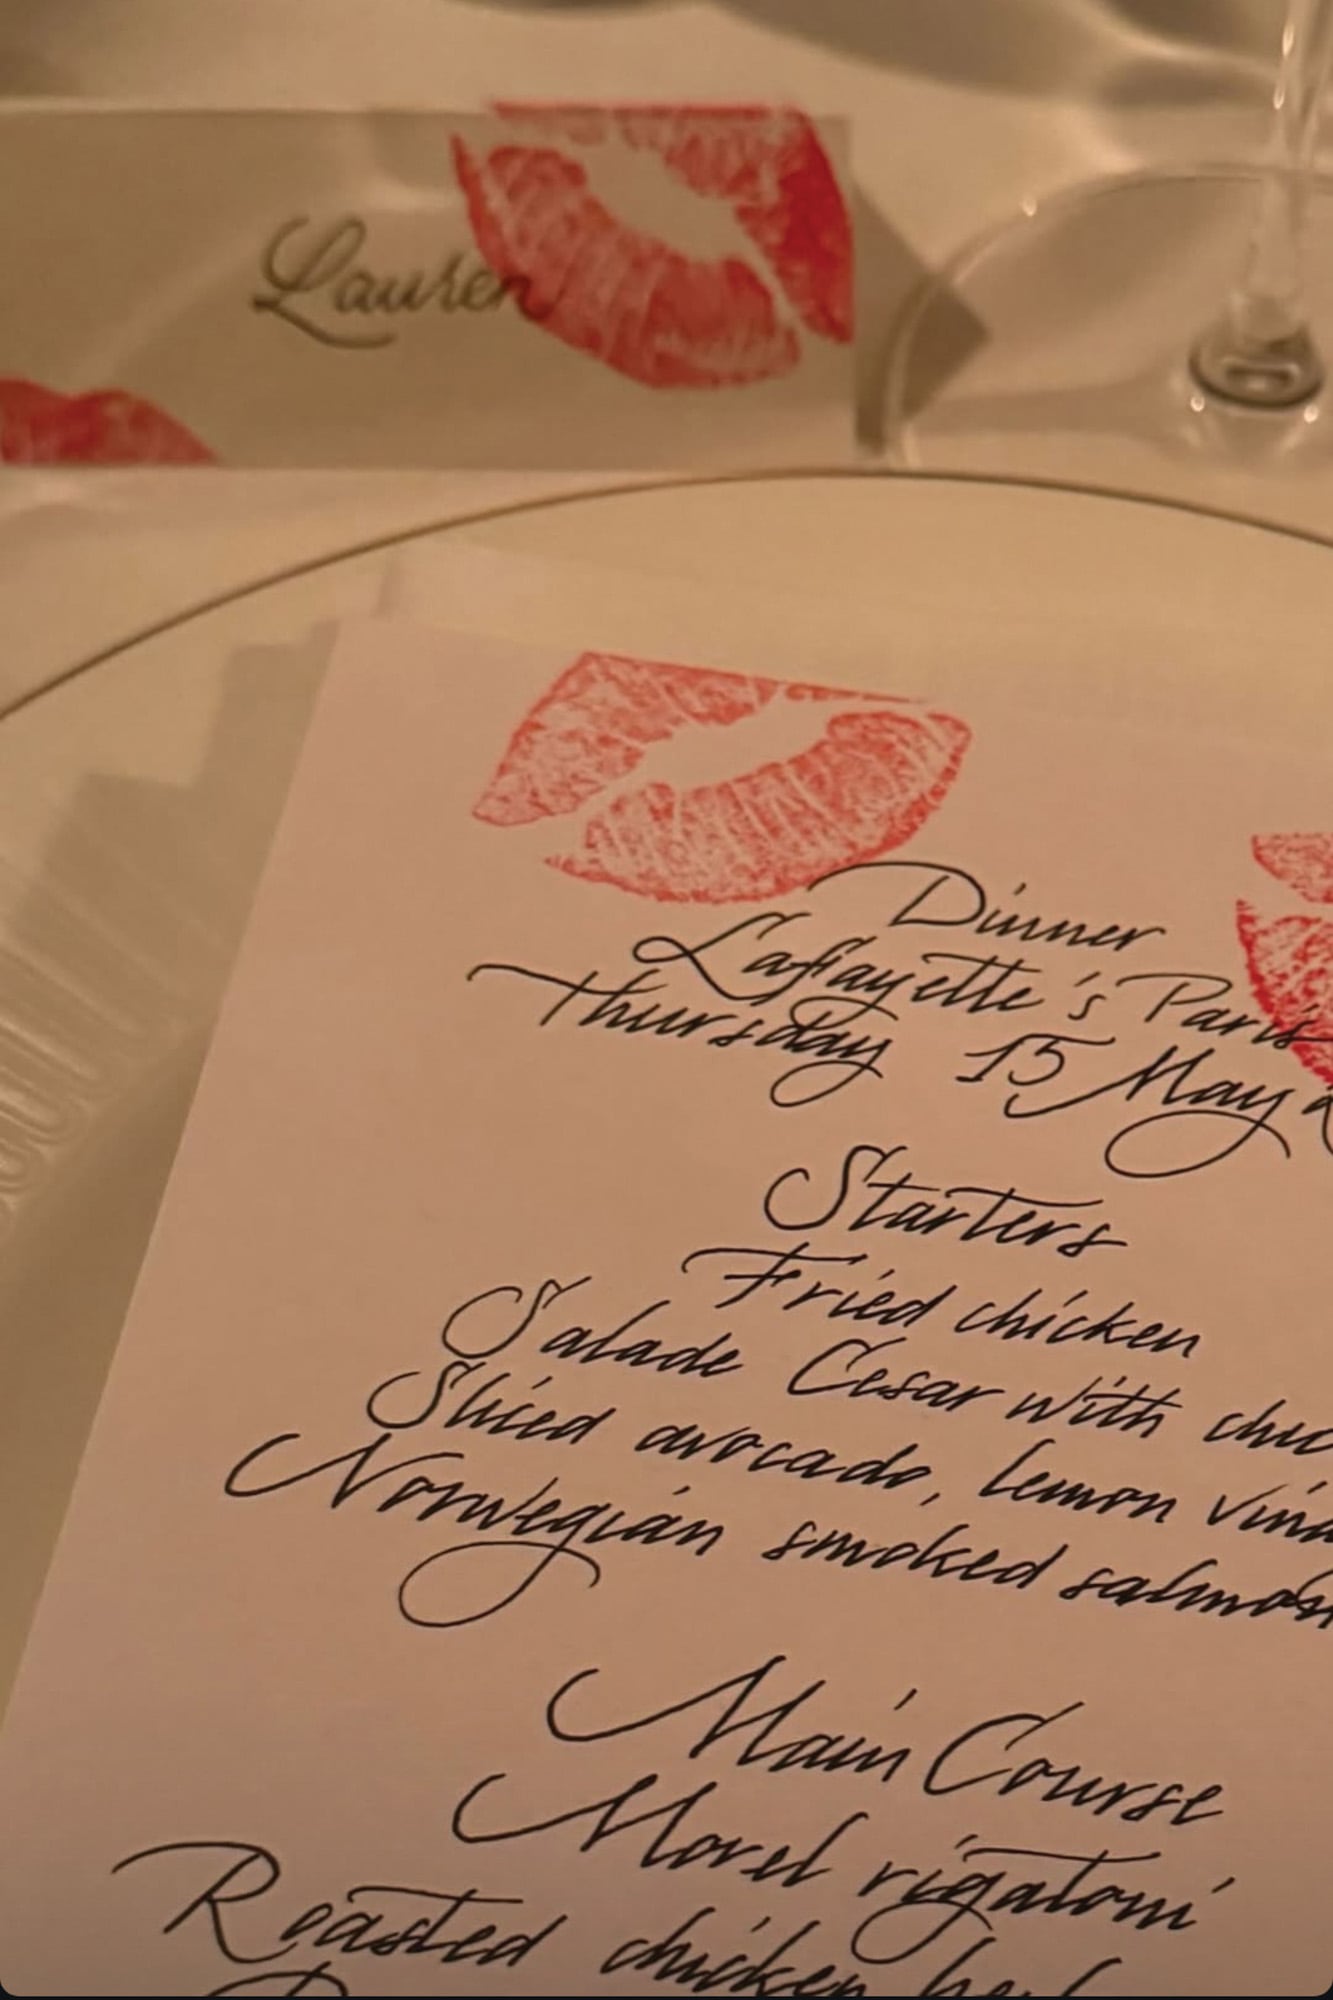 Lauren
Dinner
Lafayette's Paris
Thursday 15 May
Starters
Fried chicken
Salade Cesar with
Sliced avocado, lemon
Norwegian smoked salmon
Main Course
Morel rigatoni
Roasted chicken